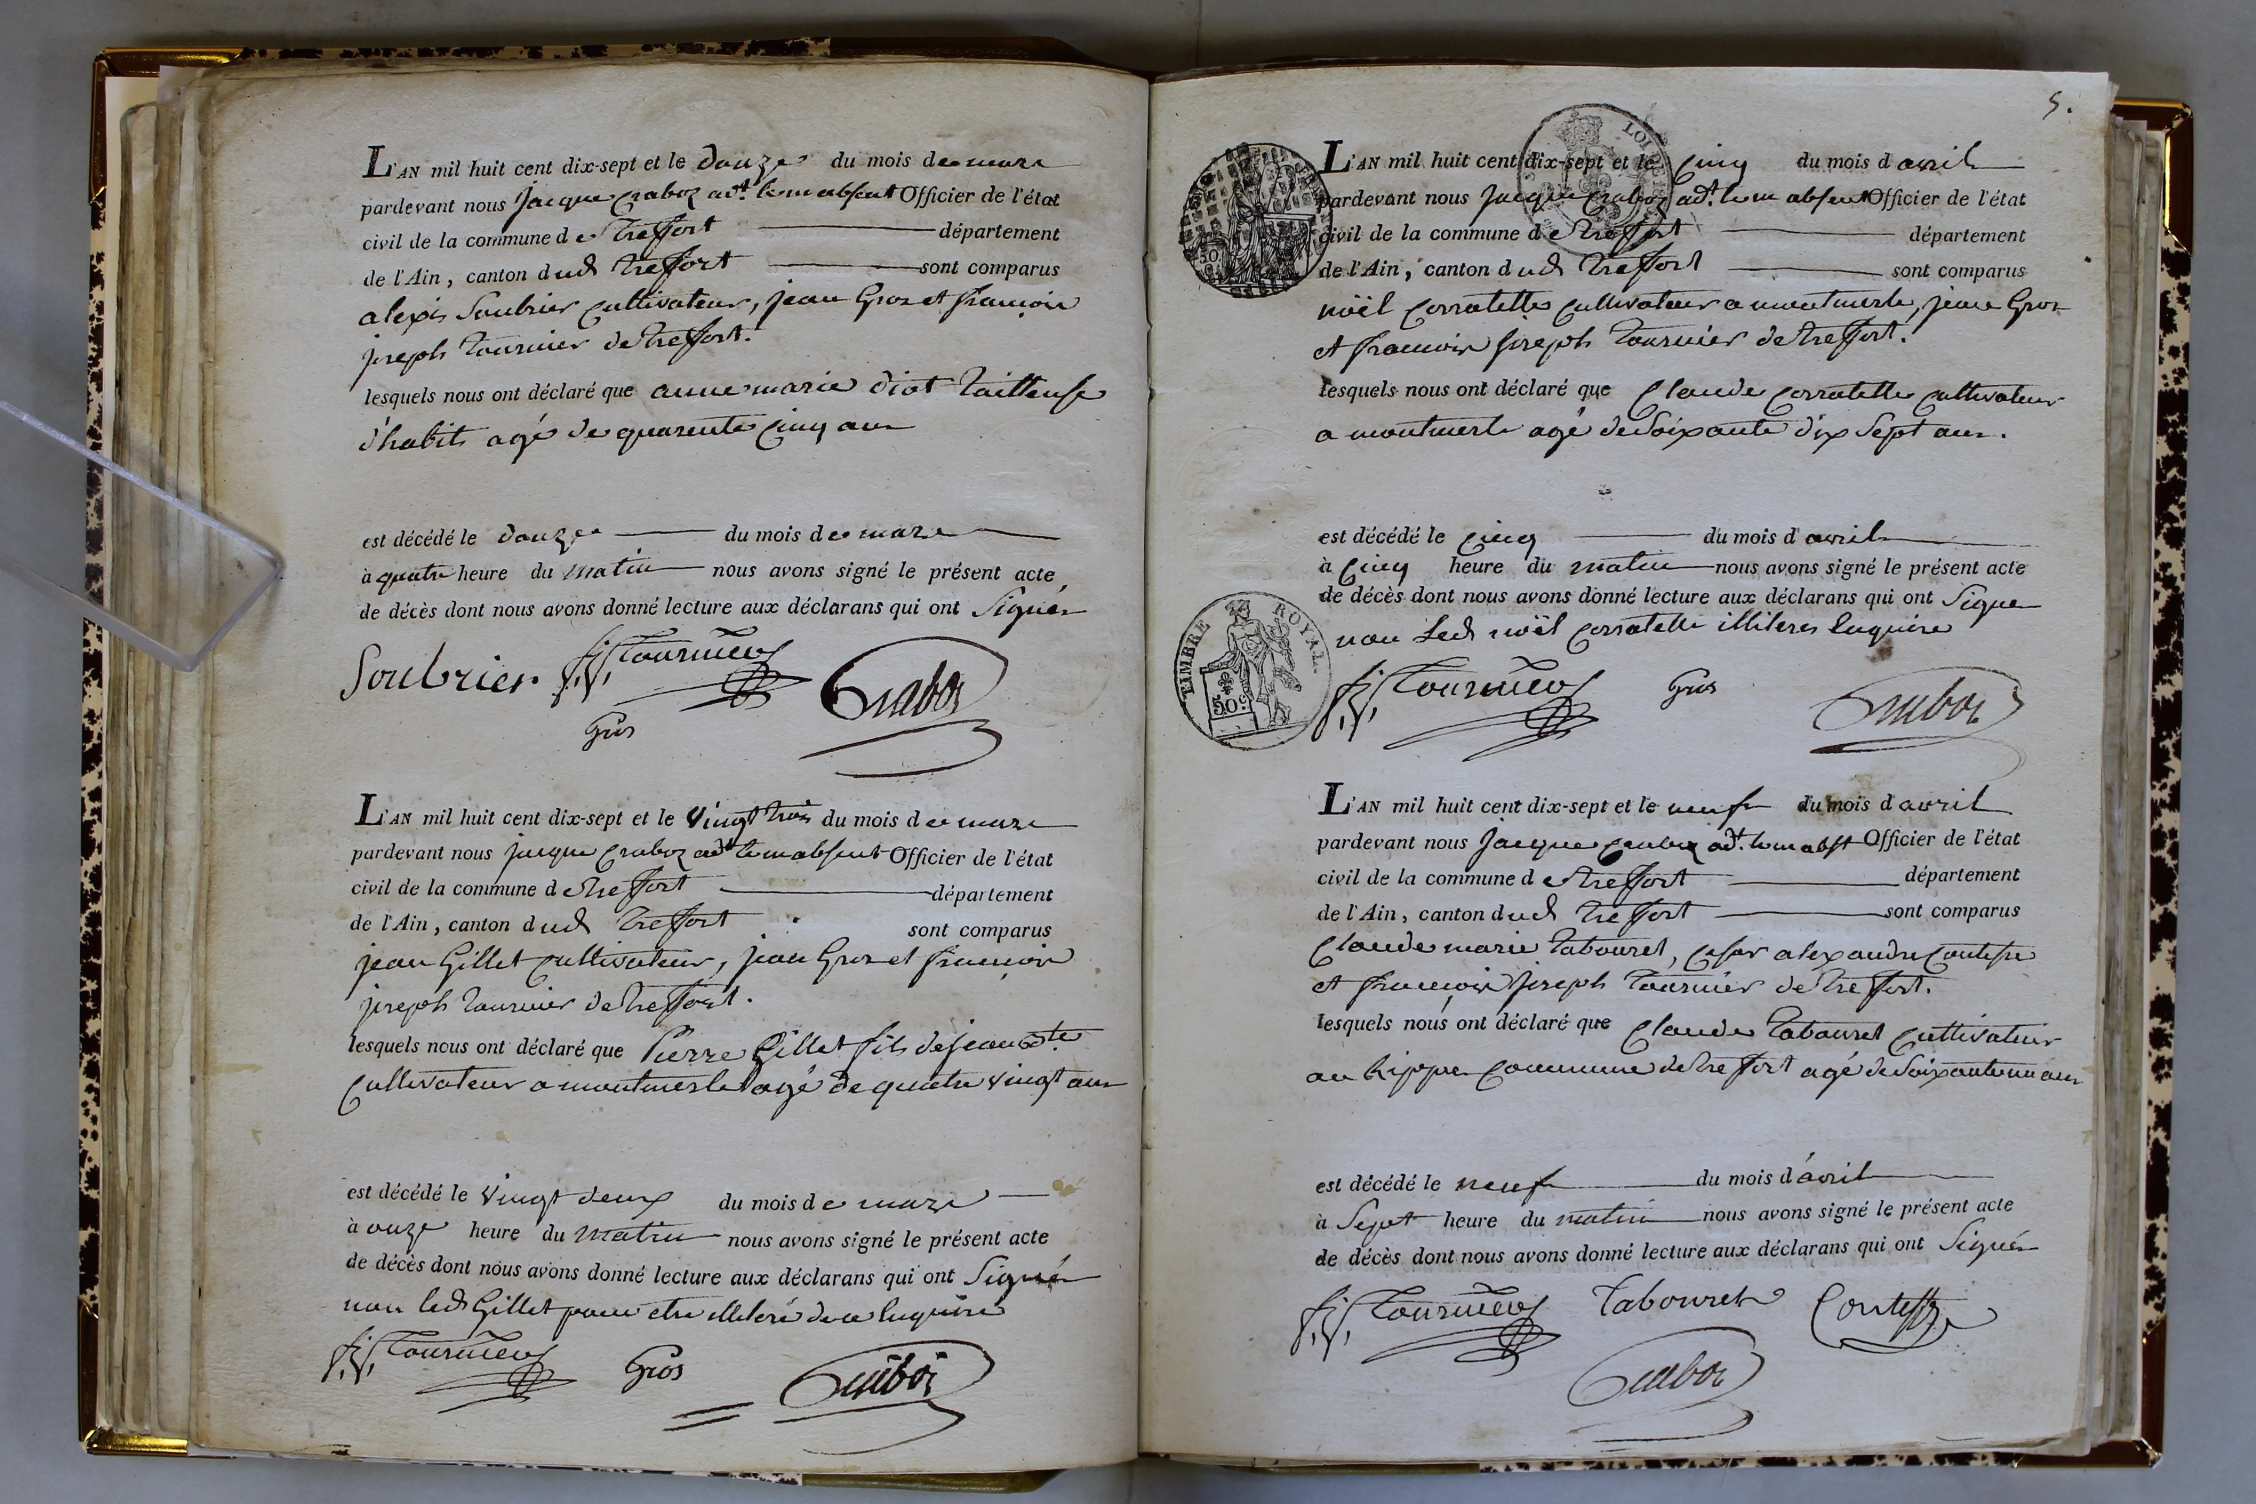 L'AN mil huit cent dix-sept et le douze du mois de mars
pardevant nous jacque Craboz adt. le m absent Officier de l'état
civil de la commune de treffort département
de l'Ain, canton dud treffort sont comparus
alexis Soubrier cultivateur, jean Gros et françois
joseph tournier de treffort.
lesquels nous ont déclaré que anne marie diot tailleuse
d'habits agé de quarente cinq ans
est décédé le douze du mois de mars
à quatre heure du matin nous avons signé le présent acte
de décès dont nous avons donné lecture aux déclarans qui ont Signés
Soubrier f. j. Tournier Craboz
Gros
L'AN mil huit cent dix-sept et le vingt trois du mois de mars
pardevant nous jacque Craboz adt le m absent Officier de l'état
civil de la commune de treffort département
de l'Ain, canton dud treffort sont comparus
jean Gillet cultivateur, jean Gros et françois
joseph tournier de treffort.
lesquels nous ont déclaré que Pierre Gillet fils de jean
cultivateur a montmerle agé de quatre vingt ans
est décédé le vingt deux du mois de mars
à onze heure du matin nous avons signé le présent acte
de décès dont nous avons donné lecture aux déclarans qui ont Signé
non led Gillet pour etre illiteré de ce enquiré
f. j. Tournier Gros Craboz
5.
L'AN mil huit cent dix-sept et le cinq du mois d'avril
pardevant nous jacque Craboz adt. le m absent Officier de l'état
civil de la commune de treffort département
de l'Ain, canton dud treffort sont comparus
noël corratelle cultivateur a montmerle, jean Gros
et françois joseph tournier de treffort.
lesquels nous ont déclaré que Claude corratelle cultivateur
a montmerle agé de Soixante dix Sept ans.
est décédé le cinq du mois d'avril
à cinq heure du matin nous avons signé le présent acte
de décès dont nous avons donné lecture aux déclarans qui ont Signé
non led noël corratelle illiteré enquiré
TIMBRE ROYAL
50 c.
f. j. Tournier Gros Craboz
L'AN mil huit cent dix-sept et le neuf du mois d'avril
pardevant nous jacque Craboz adt. le m abst Officier de l'état
civil de la commune de treffort département
de l'Ain, canton dud treffort sont comparus
Claude marie tabouret, cesar alexandre Contesse
et françois joseph tournier de treffort.
lesquels nous ont déclaré que Claude tabouret cultivateur
commune de treffort agé de Soixante un ans
est décédé le neuf du mois d'avril
à Sept heure du matin nous avons signé le présent acte
de décès dont nous avons donné lecture aux déclarans qui ont Signés
f. j. Tournier Tabouret Contesse
Craboz